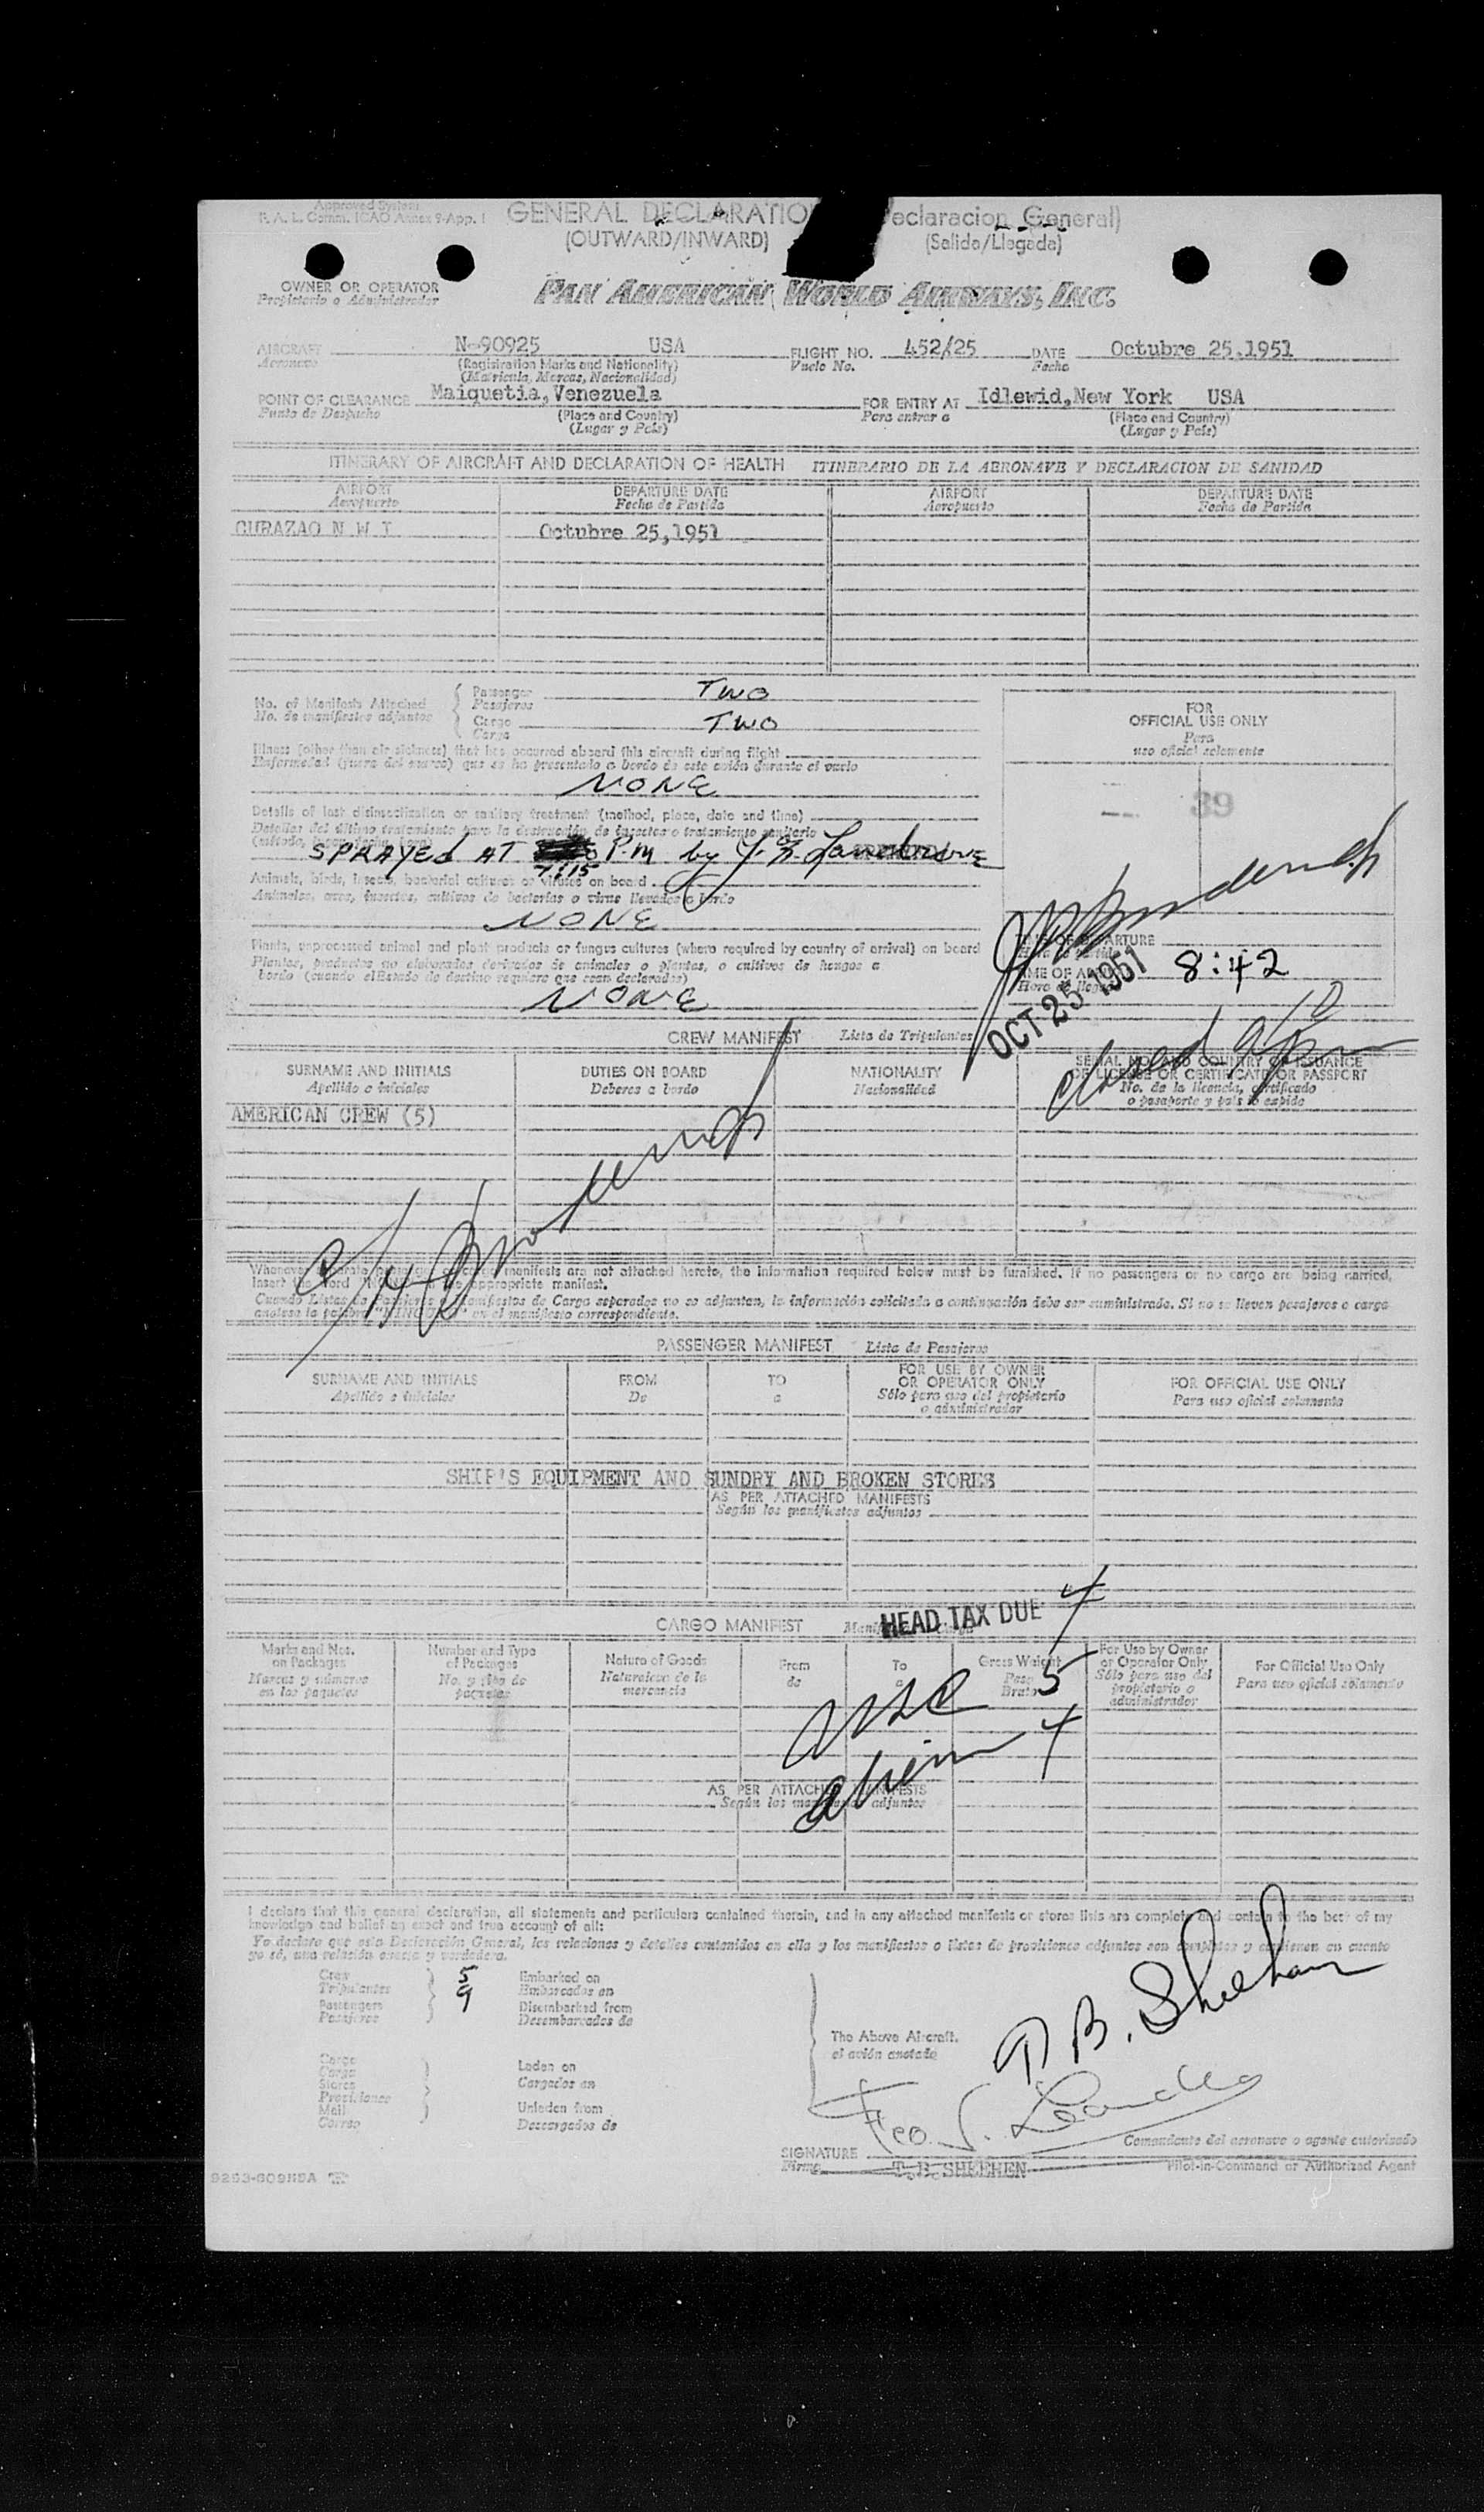 Approved System
F. A. L. Comm. ICAO Annex 9-App. 1
GENERAL DECLARATIO eclaracion General)
(OUTWARD/INWARD) (Salida/Llegada)
OWNER OR OPERATOR
Propietario o Administrador
PAN AMERICAN WORLD AIRWAYS, INC.
AIRCRAFT N-90925 USA FLIGHT NO. 452/25 DATE Octubre 25,1951
Aeronave (Registration Marks and Nationality) Vuelo No. Fecha
(Matricula, Marcas, Nacionalidad)
POINT OF CLEARANCE Maiquetia,Venezuela FOR ENTRY AT Idlewid,New York USA
Punto de Despacho (Place and Country) Para entrar a (Place and Country)
(Lugar y País) (Lugar y País)
ITINERARY OF AIRCRAFT AND DECLARATION OF HEALTH ITINERARIO DE LA AERONAVE Y DECLARACION DE SANIDAD
AIRPORT DEPARTURE DATE AIRPORT DEPARTURE DATE
Aeropuerto Fecha de Partida Aeropuerto Fecha de Partida
CURAZAO N W I Octubre 25,1951
No. of Manifests Attached Passenger TWO
No. de manifiestos adjuntos Pasajeros
Cargo TWO
Carga
FOR
OFFICIAL USE ONLY
Para
uso oficial solamente
39
Illness (other than air sickness) that has occurred aboard this aircraft during flight
Enfermedad (fuera del mareo) que se ha presentado a bordo de este avión durante el vuelo
NONE
Details of last disinsectization or sanitary treatment (method, place, date and time)
Detalles del último tratamiento para la destrucción de insectos o tratamiento sanitario
SPRAYED AT P.M by
7:15
Animals, birds, insects, bacterial cultures or viruses on board
Animales, aves, insectos, cultivos de bacterias o virus llevados a bordo
NONE
Plants, unprocessed animal and plant products or fungus cultures (where required by country of arrival) on board
Plantas, productos no elaborados derivados de animales o plantas, o cultivos de hongos a
bordo (cuando el Estado de destino requiera que sean declarados)
NONE
8:42
OCT 25 1951
closed
CREW MANIFEST Lista de Tripulantes
SURNAME AND INITIALS DUTIES ON BOARD NATIONALITY SERIAL NO. AND COUNTRY OF ISSUANCE
Apellido e iniciales Deberes a bordo Nacionalidad OF LICENSE OR CERTIFICATE OR PASSPORT
No. de la licencia, certificado
o pasaporte y país lo expide
AMERICAN CREW (5)
manifests are not attached hereto, the information required below must be furnished. If no passengers or no cargo are being carried,
appropriate manifest.
Cuando Listas de Pasajeros o Manifiestos de Carga separados no se adjuntan, la información solicitada a continuación debe ser suministrada. Si no se lleven pasajeros o carga
en el manifiesto correspondiente.
PASSENGER MANIFEST Lista de Pasajeros
SURNAME AND INITIALS FROM TO FOR USE BY OWNER FOR OFFICIAL USE ONLY
Apellido e iniciales De a OR OPERATOR ONLY Para uso oficial solamente
Sólo para uso del propietario
o administrador
SHIP'S EQUIPMENT AND SUNDRY AND BROKEN STORES
AS PER ATTACHED MANIFESTS
Según los manifiestos adjuntos
HEAD TAX DUE 4
CARGO MANIFEST
Marks and Nos. Number and Type Nature of Goods From To Gross Weight For Use by Owner For Official Use Only
on Packages of Packages Naturaleza de la de a Peso or Operator Only Para uso oficial solamente
Marcas y números No. y tipo de mercancía Bruto Sólo para uso del
en los paquetes paquetes propietario o
administrador
USC 5
alien 4
AS PER ATTACHED MANIFESTS
Según los manifiestos adjuntos
I declare that this general declaration, all statements and particulars contained therein, and in any attached manifests or stores lists are complete and contain to the best of my
knowledge and belief an exact and true account of all:
Yo declaro que esta Declaración General, las relaciones y detalles contenidos en ella y los manifiestos o listas de provisiones adjuntos son completos y contienen en cuanto
yo sé, una relación exacta y verdadera.
Crew 5 Embarked on
Tripulantes Embarcados en
Passengers 9 Disembarked from
Pasajeros Desembarcados de
The Above Aircraft.
el avión anotado
Cargo
Carga Laden on
Stores Cargados en
Provisiones
Mail Unladen from
Correo Descargados de
T B. Sheehan
Comandante del aeronave o agente autorizado
SIGNATURE
Firma T. B. SHEEHEN Pilot-in-Command or Authorized Agent